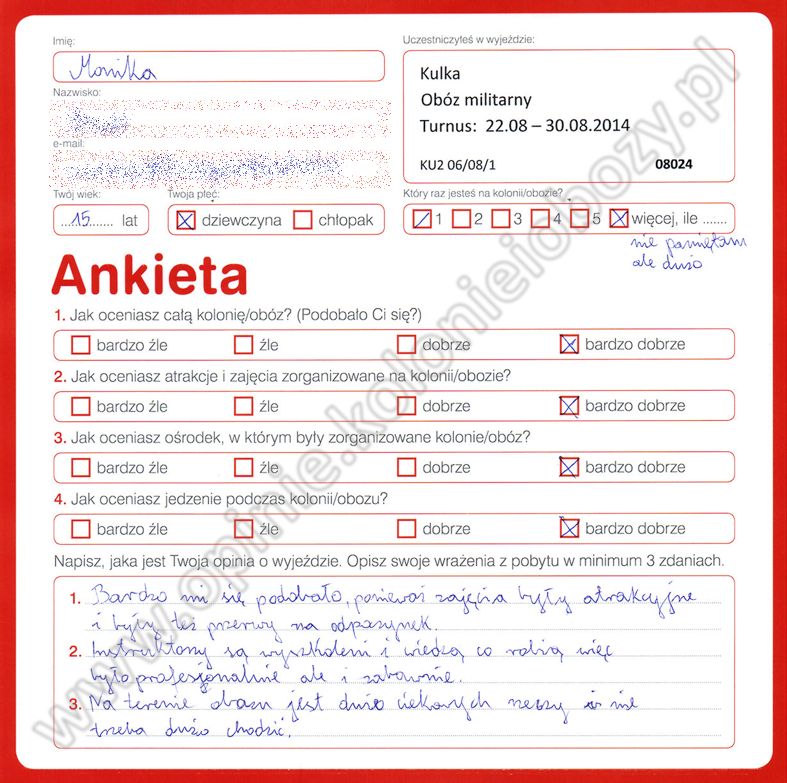 Imię:
Monika
Nazwisko:
e-mail:
Twój wiek:
15 lat
Twoja płeć:
dziewczyna chłopak
Uczestniczyłeś w wyjeździe:
Kulka
Obóz militarny
Turnus: 22.08 – 30.08.2014
KU2 06/08/1 08024
Który raz jesteś na kolonii/obozie?
1 2 3 4 5 więcej, ile .......
nie pamiętam
ale dużo
Ankieta
1. Jak oceniasz całą kolonię/obóz? (Podobało Ci się?)
bardzo źle źle dobrze bardzo dobrze
2. Jak oceniasz atrakcje i zajęcia zorganizowane na kolonii/obozie?
bardzo źle źle dobrze bardzo dobrze
3. Jak oceniasz ośrodek, w którym były zorganizowane kolonie/obóz?
bardzo źle źle dobrze bardzo dobrze
4. Jak oceniasz jedzenie podczas kolonii/obozu?
bardzo źle źle dobrze bardzo dobrze
Napisz, jaka jest Twoja opinia o wyjeździe. Opisz swoje wrażenia z pobytu w minimum 3 zdaniach.
1. Bardzo mi się podobało, ponieważ zajęcia były atrakcyjne
i były też przerwy na odpoczynek.
2. Instruktorzy są wyszkoleni i wiedzą co robią więc
było profesjonalnie ale i zabawnie.
3. Na terenie obozu jest dużo ciekawych rzeczy i nie
trzeba dużo chodzić.
www.opinie.kolonieiobozy.pl